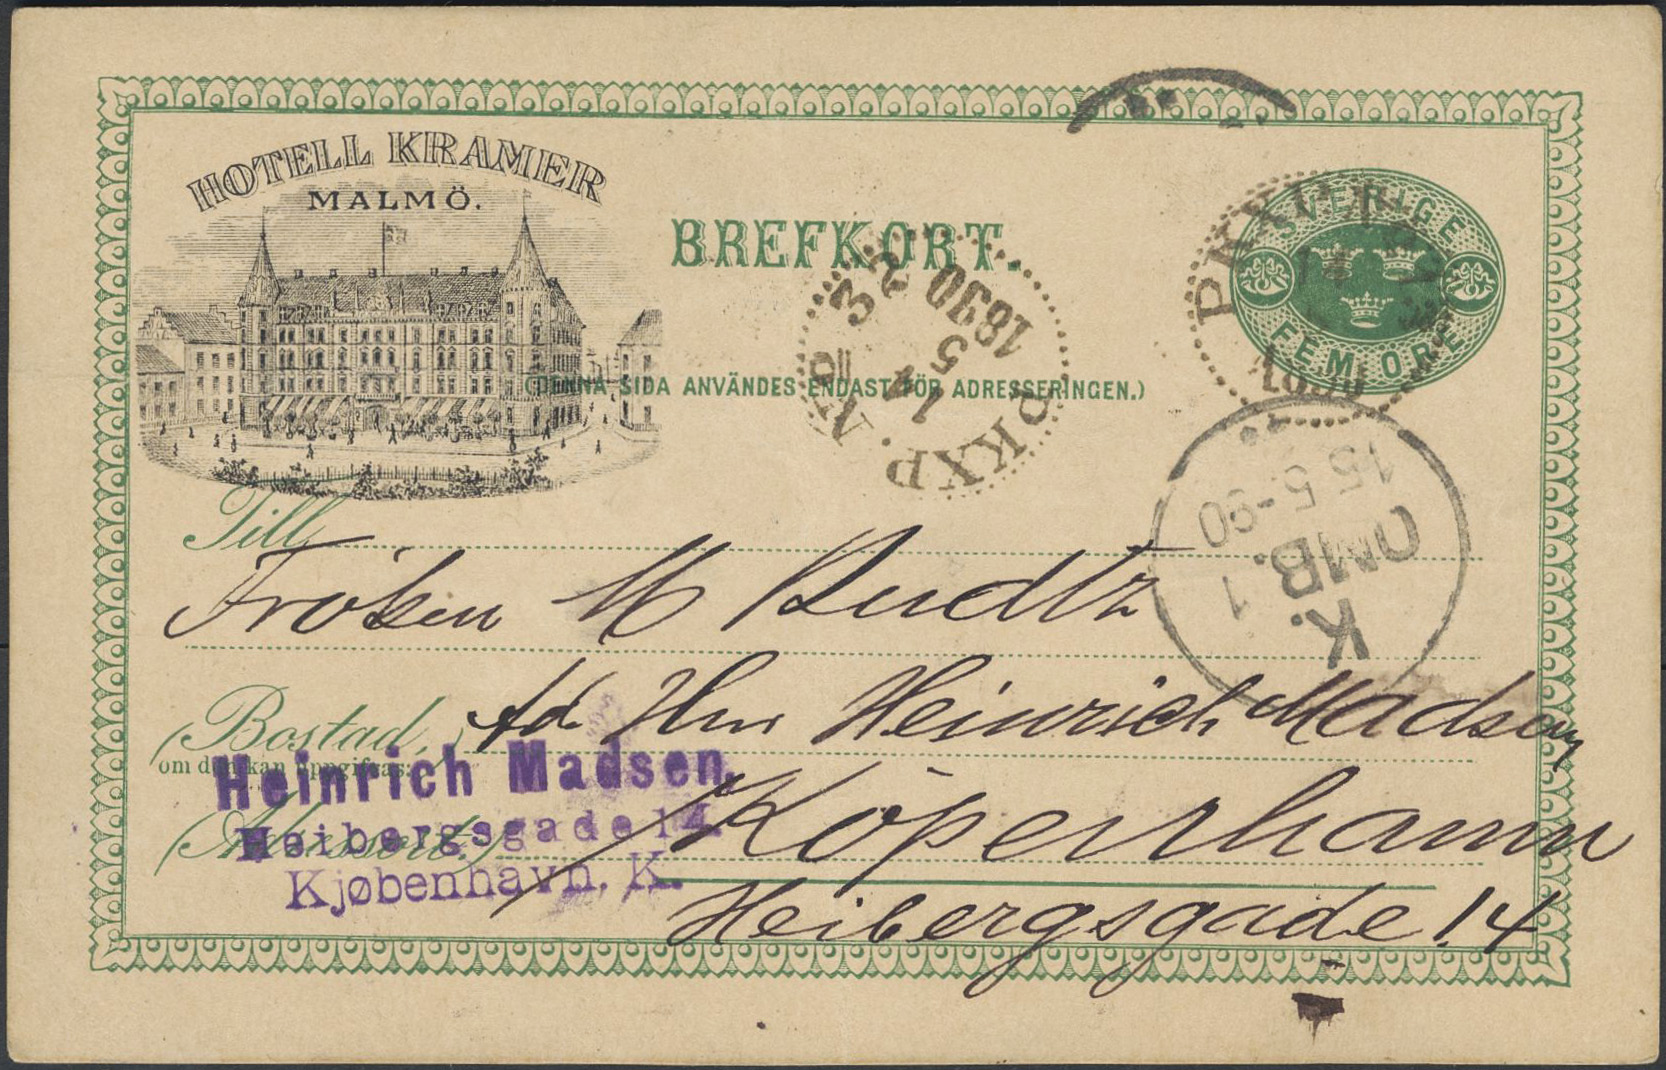 HOTELL KRAMER
MALMÖ.
BREFKORT.
SVERIGE
FEM ÖRE
(DENNA SIDA ANVÄNDES ENDAST FÖR ADRESSERINGEN.)
PKXP. Nr
14
5
1890
K.
OMB. 1
15 5-90
Till
Fröken M Rudtz
Bostad,
(om den kan uppgifvas:
Ad Hrr Heinrich Madsen
Heinrich Madsen.
Heibergsgade 14.
Kjøbenhavn. K.
Köpenhamn
Heibergsgade 14